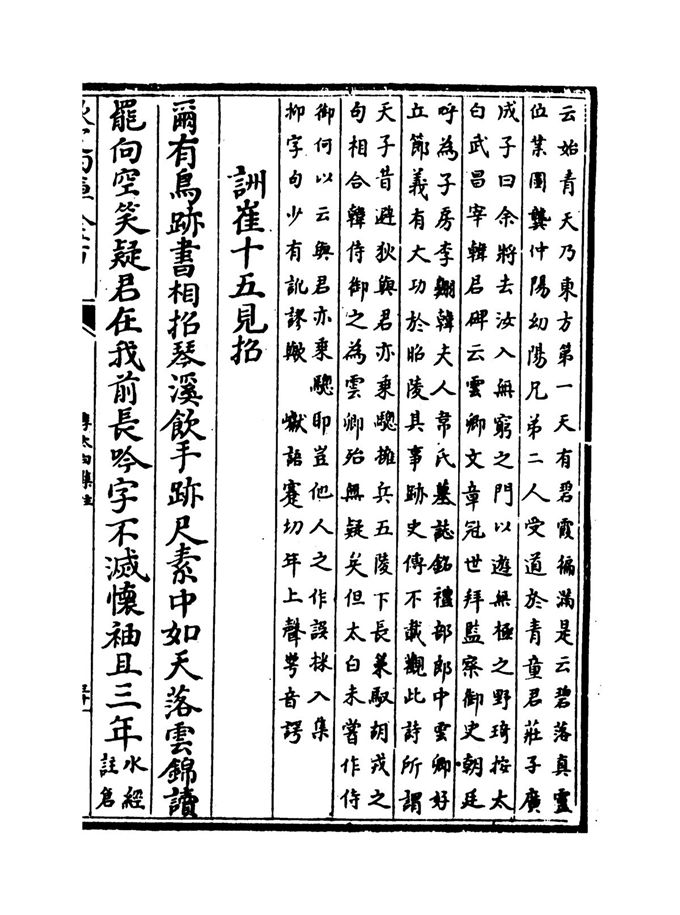 云始青天乃東方第一天有碧霞徧滿是云碧落真靈
位業圖龔仲陽幼陽兄弟二人受道於青童君莊子廣
成子曰余將去汝入無窮之門以遊無極之野琦按太
白武昌宰韓君碑云雲卿文章冠世拜監察御史朝廷
呼為子房李翺韓夫人韋氏墓誌銘禮部郎中雲卿好
立節義有大功於昭陵其事跡史傳不載觀此詩所謂
天子昔避狄與君亦乗驄擁兵五陵下長策馭胡戎之
句相合韓侍御之為雲卿殆無疑矣但太白未嘗作侍
御何以云與君亦乗驄耶豈他人之作誤採入集
抑字句少有訛謬歟 巘語蹇切年上聲萼音諤
詶崔十五見招
爾有鳥跡書相招琴溪飲手跡尺素中如天落雲錦讀
罷向空笑疑君在我前長吟字不滅懷袖且三年水經
註倉
李太白集註